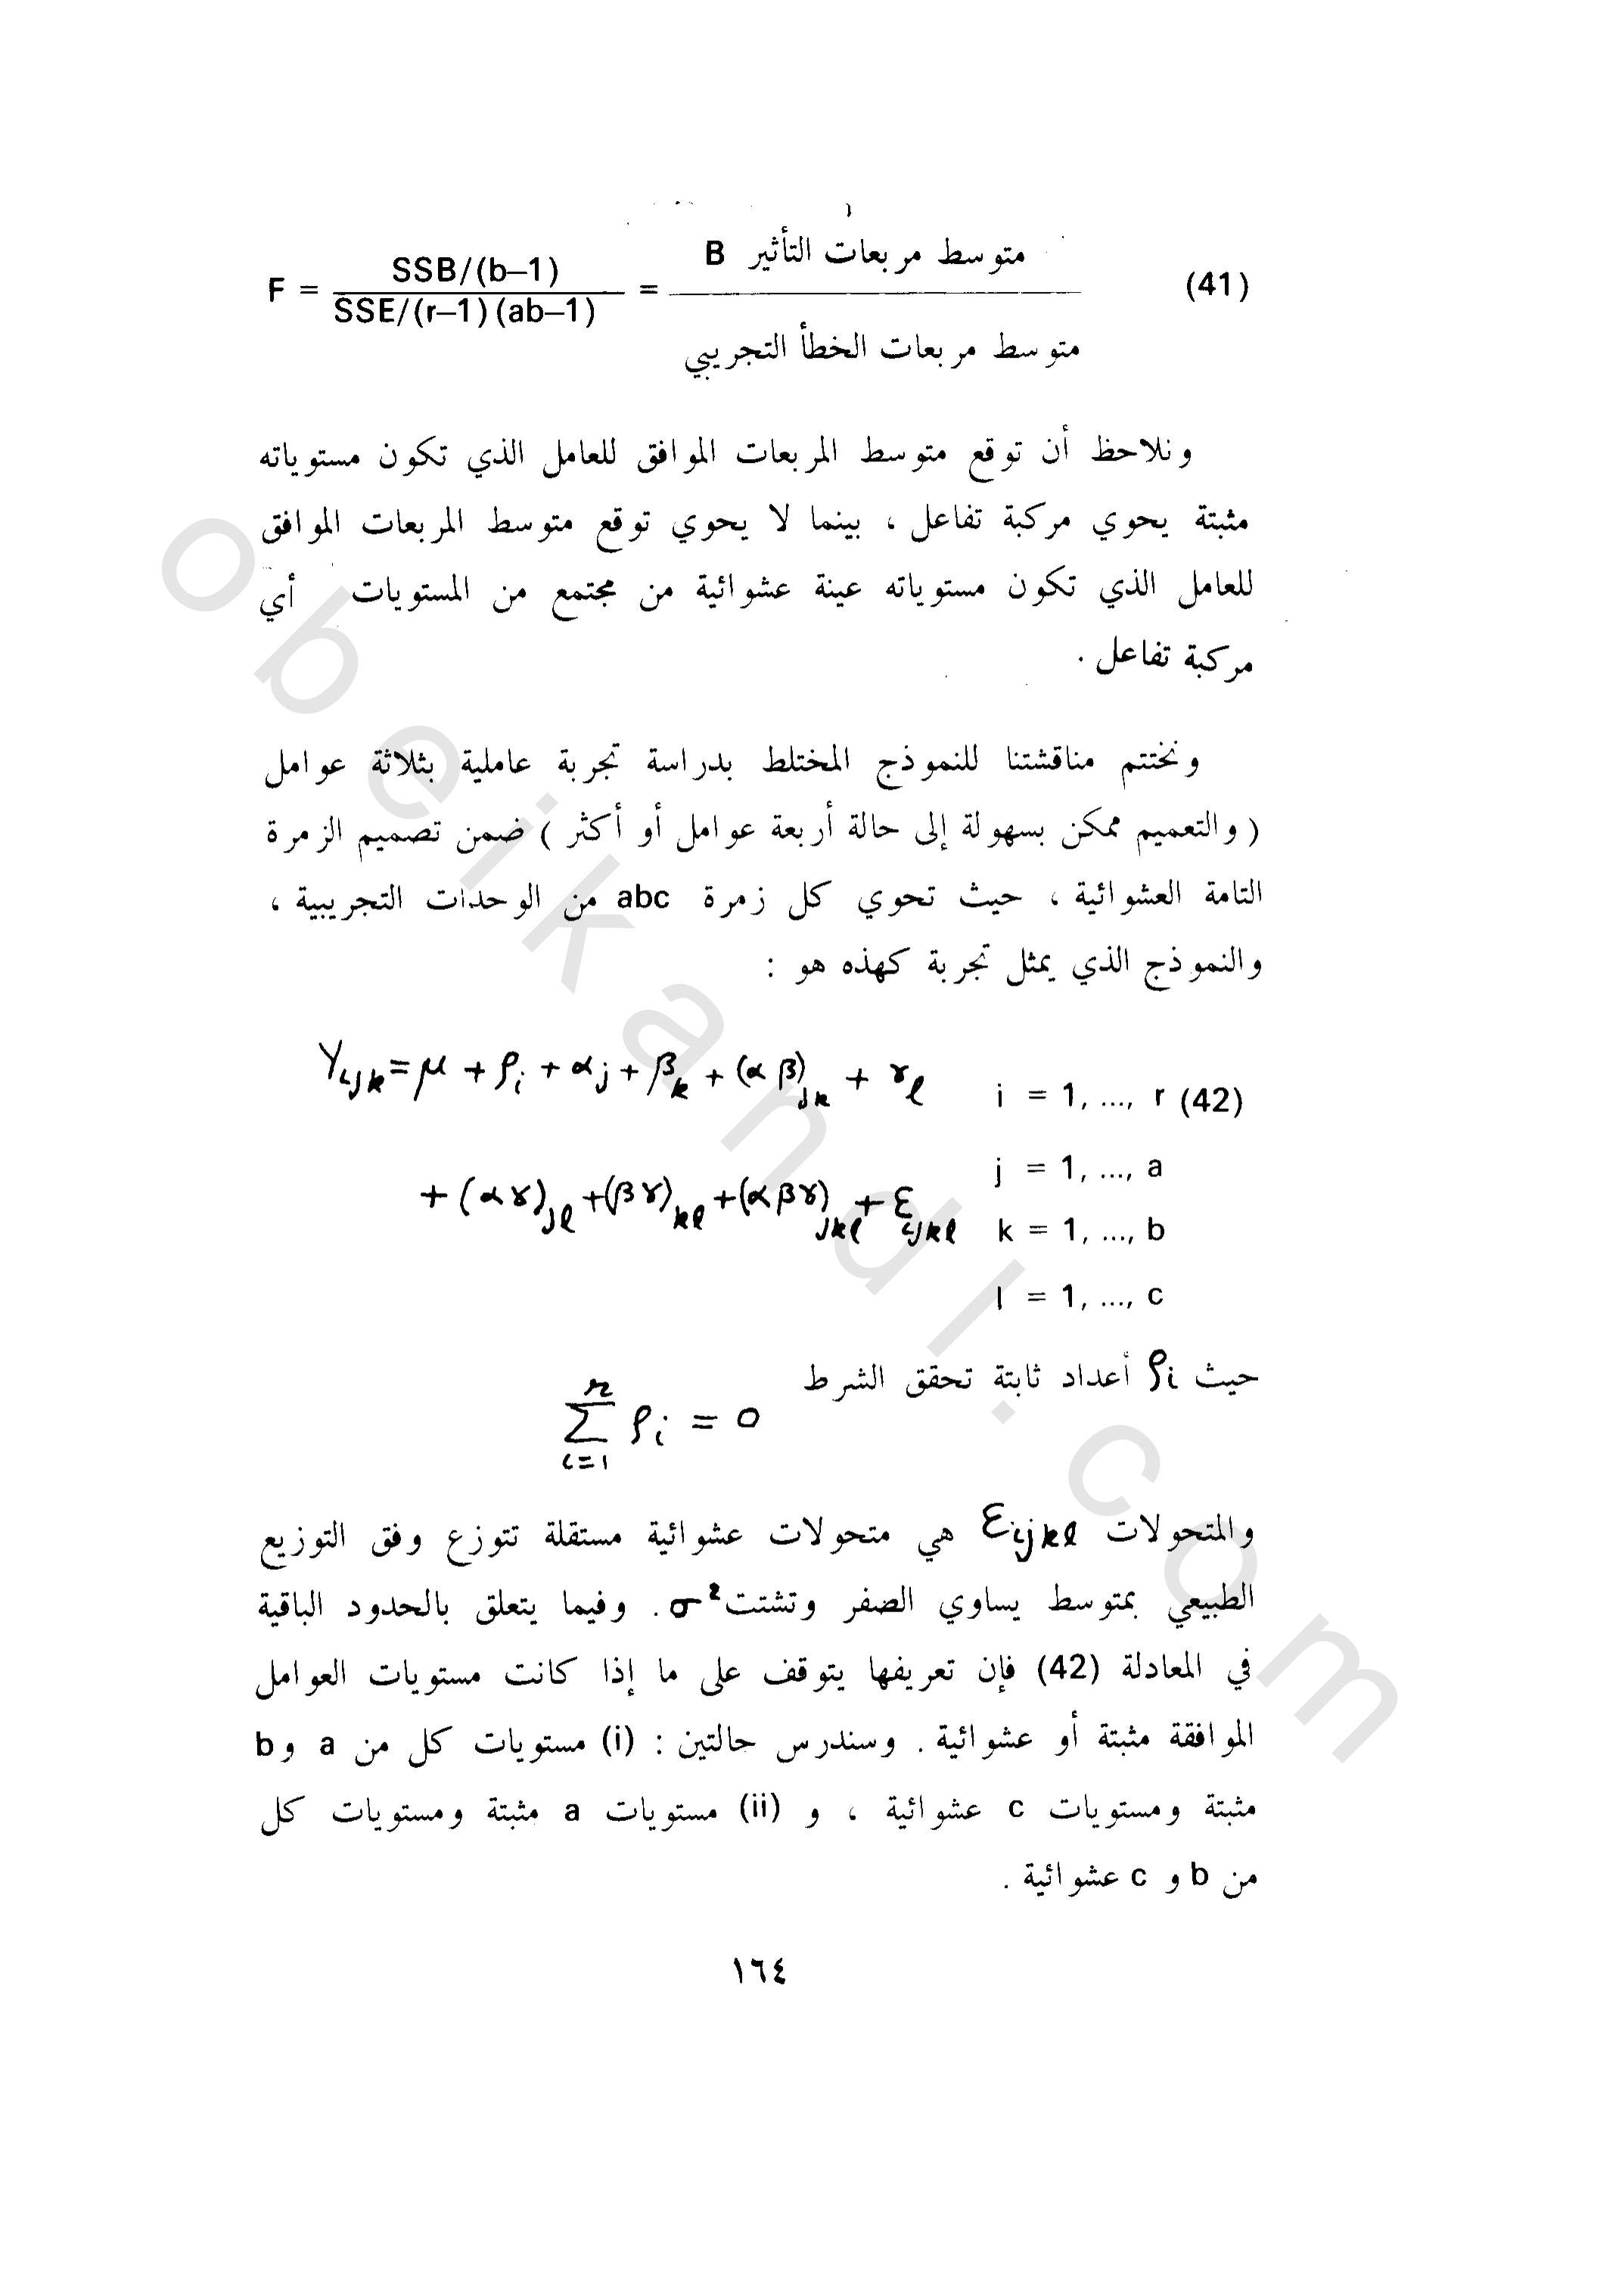 F = SSB/(b–1) / SSE/(r–1)(ab–1) = متوسط مربعات التأثير B / متوسط مربعات الخطأ التجريبي (41)
ونلاحظ أن توقع متوسط المربعات الموافق للعامل الذي تكون مستوياته
مثبتة يحوي مركبة تفاعل ، بينما لا يحوي توقع متوسط المربعات الموافق
للعامل الذي تكون مستوياته عينة عشوائية من مجتمع من المستويات أي
مركبة تفاعل .
ونختتم مناقشتنا للنموذج المختلط بدراسة تجربة عاملية بثلاثة عوامل
( والتعميم ممكن بسهولة إلى حالة أربعة عوامل أو أكثر ) ضمن تصميم الزمرة
التامة العشوائية ، حيث تحوي كل زمرة abc من الوحدات التجريبية ،
والنموذج الذي يمثل تجربة كهذه هو :
Yijk = μ + ρi + αj + βk + (αβ)jk + γl i = 1, ..., r (42)
j = 1, ..., a
+ (αγ)jl + (βγ)kl + (αβγ)jkl + εijkl k = 1, ..., b
l = 1, ..., c
حيث ρi أعداد ثابتة تحقق الشرط
∑ r i=1 ρi = 0
والمتحولات εijkl هي متحولات عشوائية مستقلة تتوزع وفق التوزيع
الطبيعي بمتوسط يساوي الصفر وتشتت σ². وفيما يتعلق بالحدود الباقية
في المعادلة (42) فإن تعريفها يتوقف على ما إذا كانت مستويات العوامل
الموافقة مثبتة أو عشوائية . وسندرس حالتين : (i) مستويات كل من a و b
مثبتة ومستويات c عشوائية ، و (ii) مستويات a مثبتة ومستويات كل
من b و c عشوائية .
١٦٤
obeikandl.com